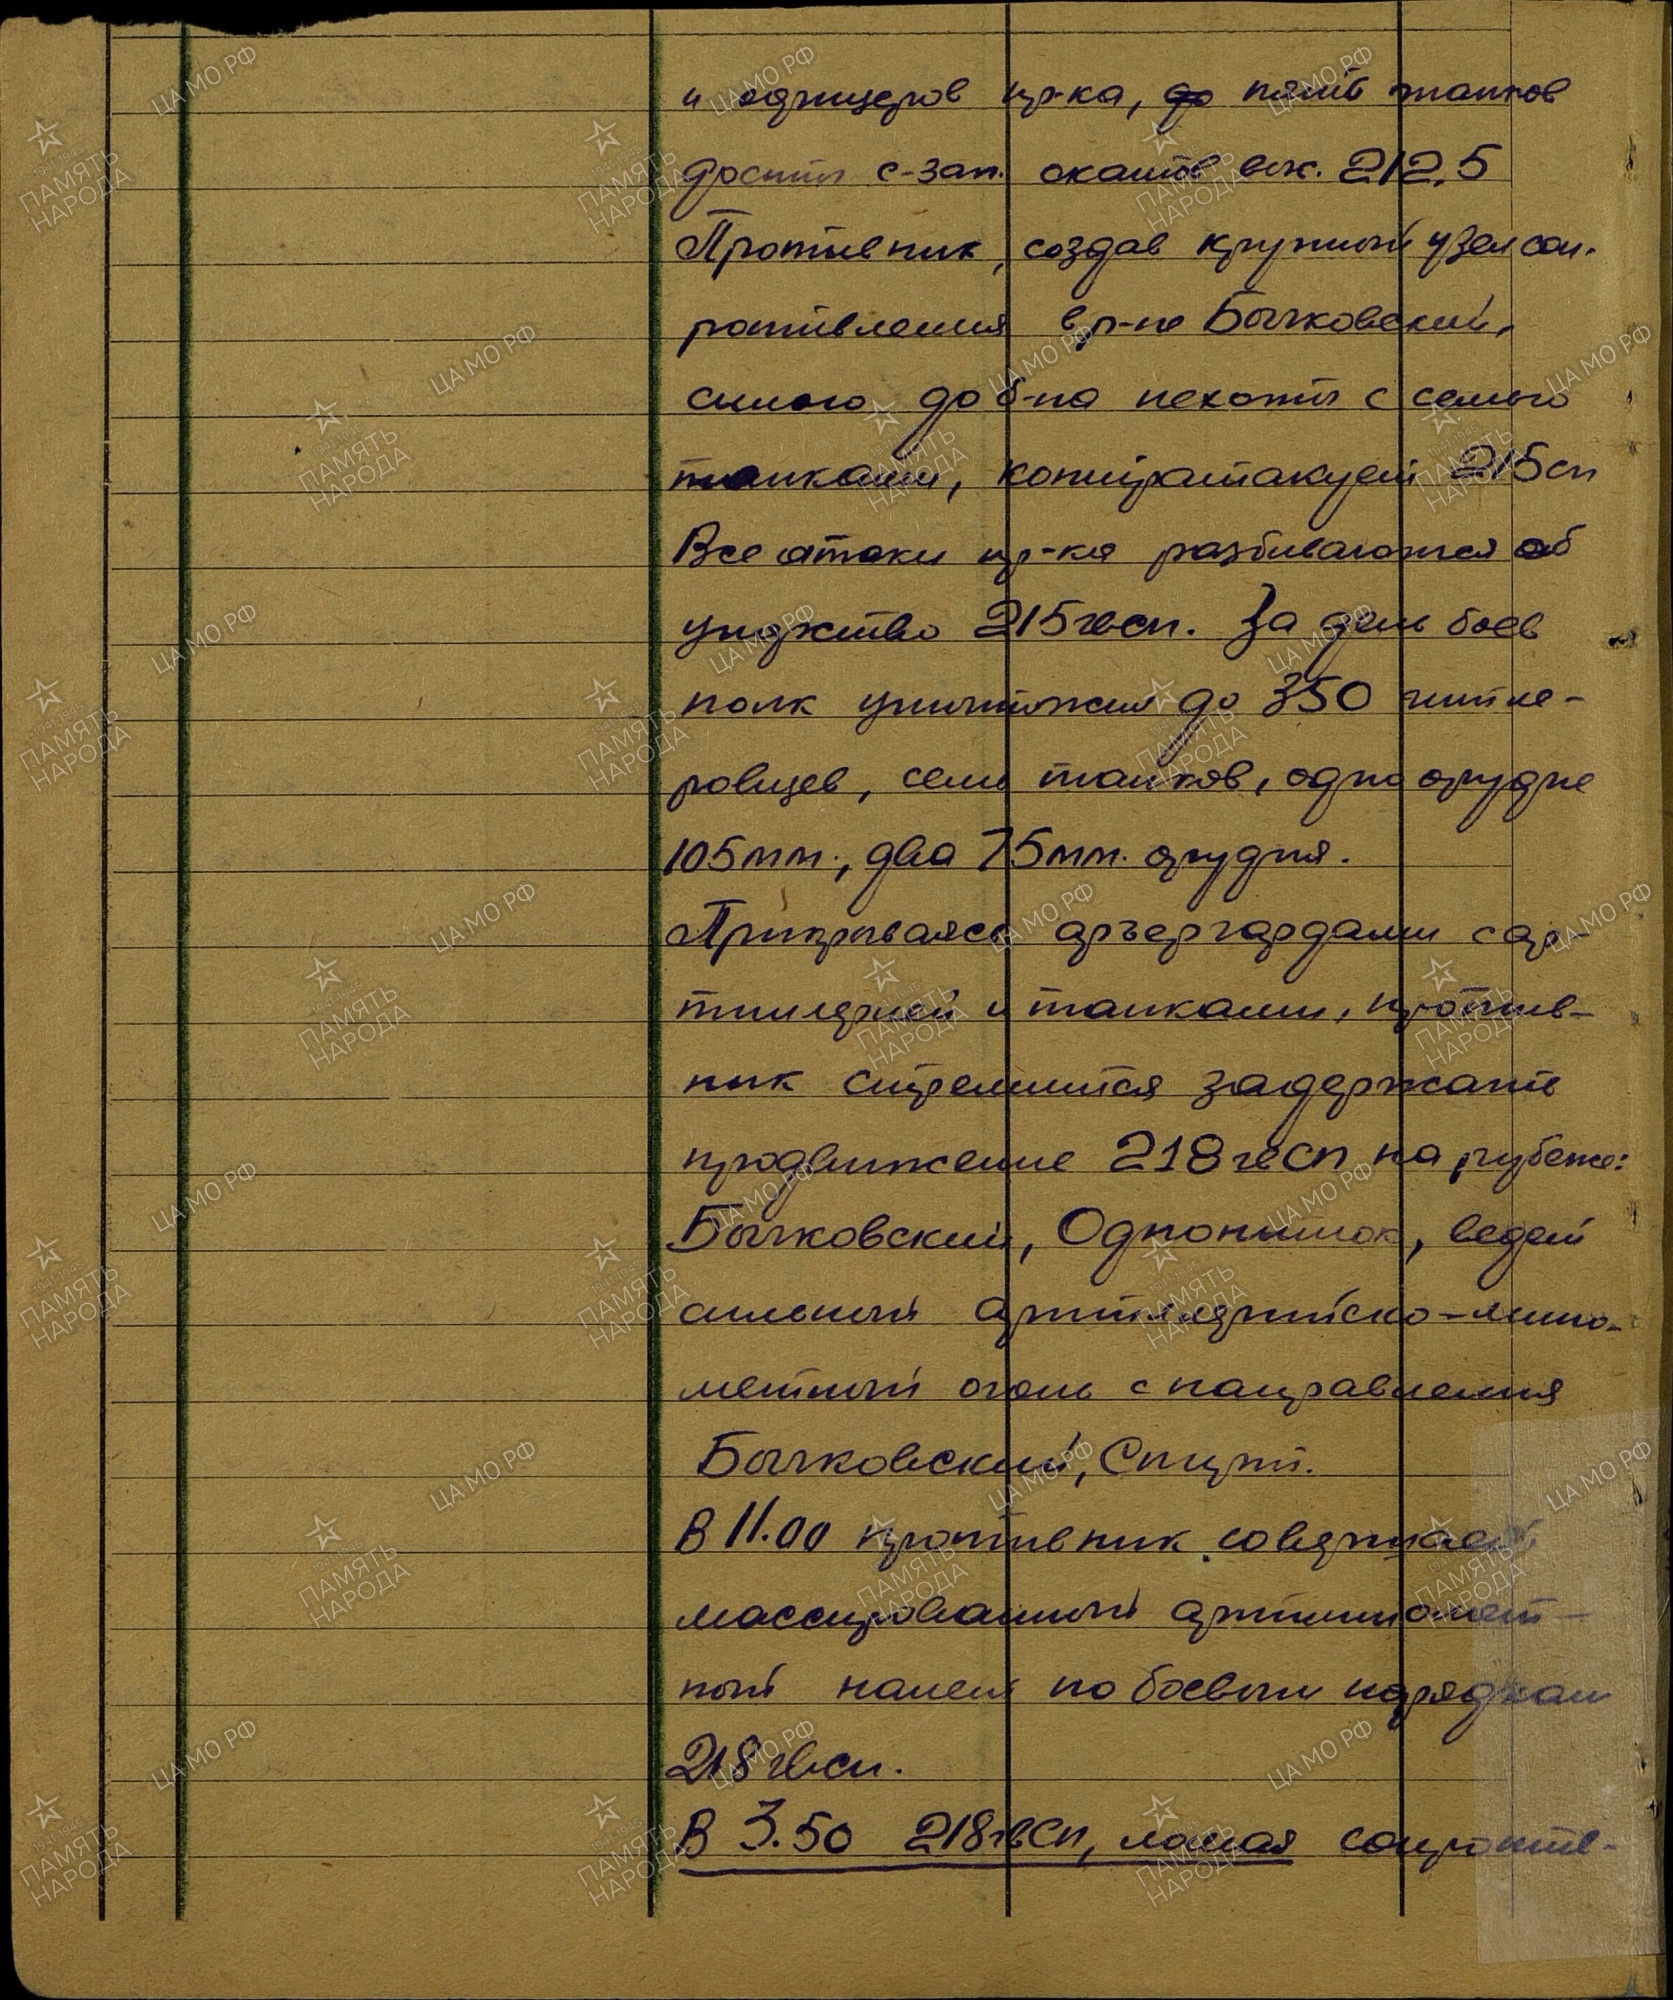 и офицеров пр-ка, до пяти танков
достиг с-зап. скатов выс. 212,5
Противник, создав крупный узел соп-
ротивления в р-не Бычковский,
силою до б-на пехоты с семью
танками, контратакует 215 сп
Все атаки пр-ка разбиваются об
упорство 215 гвсп. За день боев
полк уничтожил до 350 гитле-
ровцев, семь танков, одно орудие
105 мм., два 75 мм. орудия.
Прикрываясь арьергардами с ар-
тиллерией и танками, против-
ник стремится задержать
продвижение 218 гвсп на рубеже:
Бычковский, ведет
сильный артиллерийско-мино-
метный огонь с направления
Бычковский, Спирт.
В 11.00 противник совершает
массированный артминомет-
ный налет по боевым порядкам
218 гвсп.
В 3.50 218 гвсп, ломая сопротив-